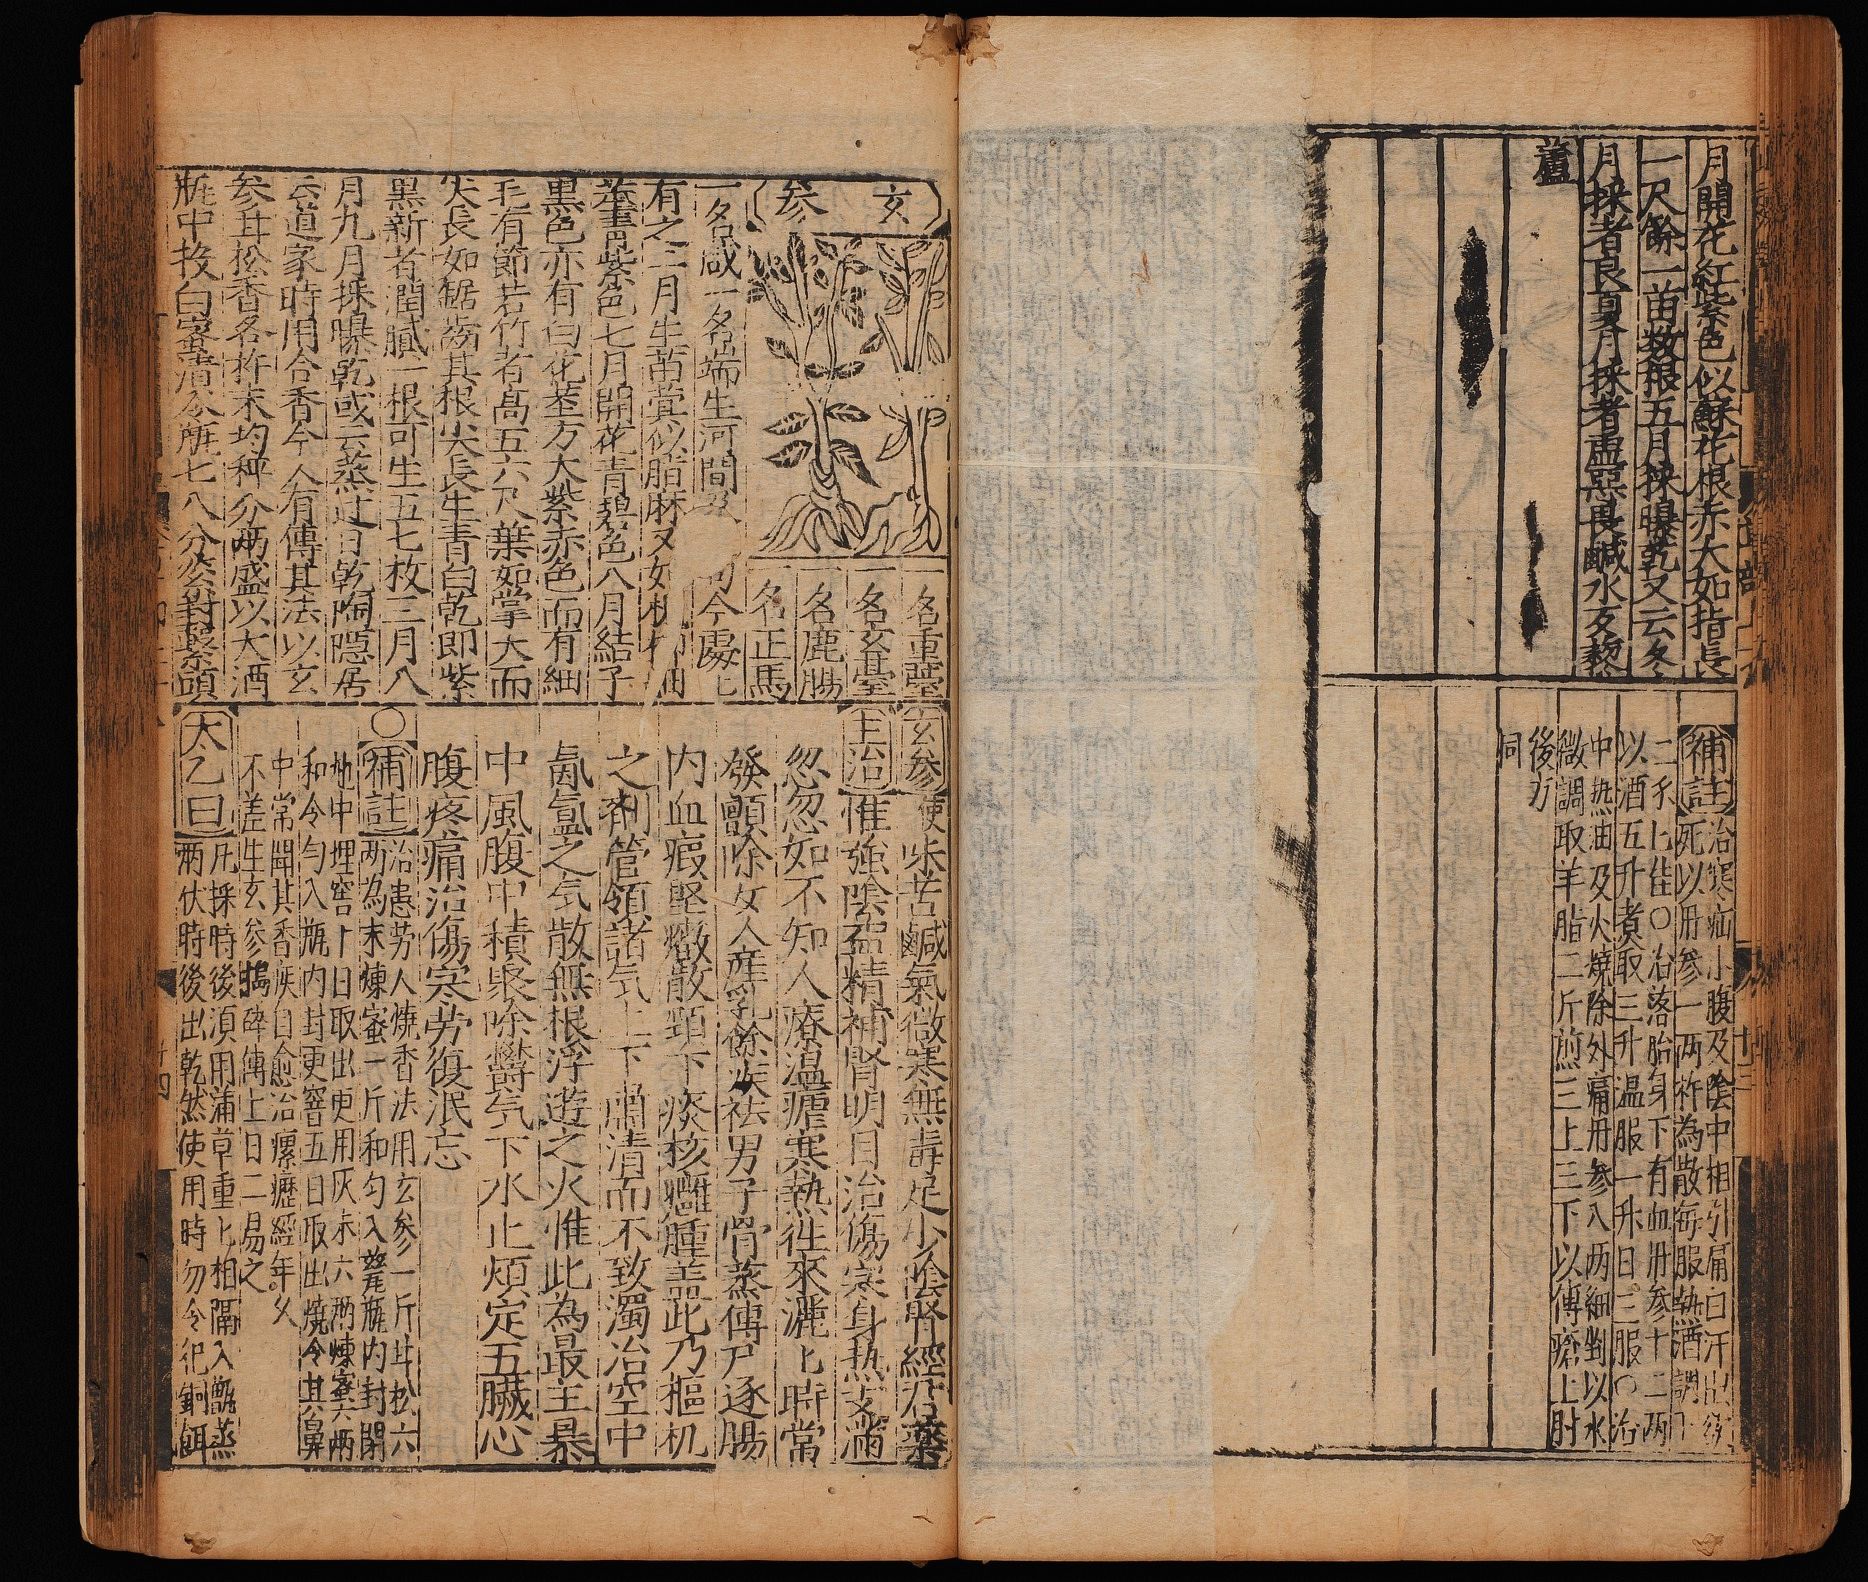 月開花紅紫色似蘇花根赤大如指長
一尺餘一苗数根五月採曝乾又云冬
月採者良夏月採者虛惡畏鹹水反藜
蘆
補註
治寒疝小腹及陰中相引痛白汗出欲
死以丹参一两杵為散每服熱酒調下
二 匕佳○治落胎身下有血丹参十二两
以酒五升煮取三升温服一升日三服○治
中热油及火燒除外痛丹参八两細剉以水
微調取羊脂二斤煎三上三下以傅瘡上肘
後方
同
玄参
一名重臺
一名玄臺
一名鹿腸
一名正馬
一名咸一名端生河間 今處匕
有之二月生苗葉似脂麻又如
莖青紫色七月開花青碧色八月結子
黑色亦有白花莖方大紫赤色而有細
毛有節若竹者高五六尺葉如掌大而
尖長如鋸齒其根尖長生青白乾即紫
黑新者潤膩一根可生五七枚三月八
月九月採曝乾或云蒸过日乾陶隱居
云道家時用合香今人有傳其法以玄
参甘松香各杵末均秤分兩盛以大酒
瓶中投白蜜漬令瓶七八分紧封繫頭
玄参使味苦鹹氣微寒無毒足少陰腎經君藥
主治惟強陰益精補腎明目治傷寒身熱支滿
忽忽如不知人療温瘧寒熱往來灑匕時常
發顫除女人產乳餘疾袪男子骨蒸傳尸逐腸
内血瘕堅癥散頸下痰核癰腫盖此乃樞机
之劑管領諸气上下肅清而不致濁治空中
氤氳之气散無根浮遊之火惟此為最主暴
中風腹中積聚除欝气下水止煩定五臟心
腹疼痛治傷寒劳復泯忘
○補註
治患劳人燒香法用玄参一斤甘松六
两為末煉蜜一斤和匀入甆瓶内封閉
地中埋窨十日取出更用灰末六兩煉蜜六两
和令匀入瓶内封更窨五日取出燒令其鼻
中常聞其香疾自愈治瘰癧經年久
不差生玄参搗碎傅上日二易之
太乙曰
凡採時後須用蒲草重匕相隔入甑蒸
两伏時後出乾然使用時勿令犯銅餌